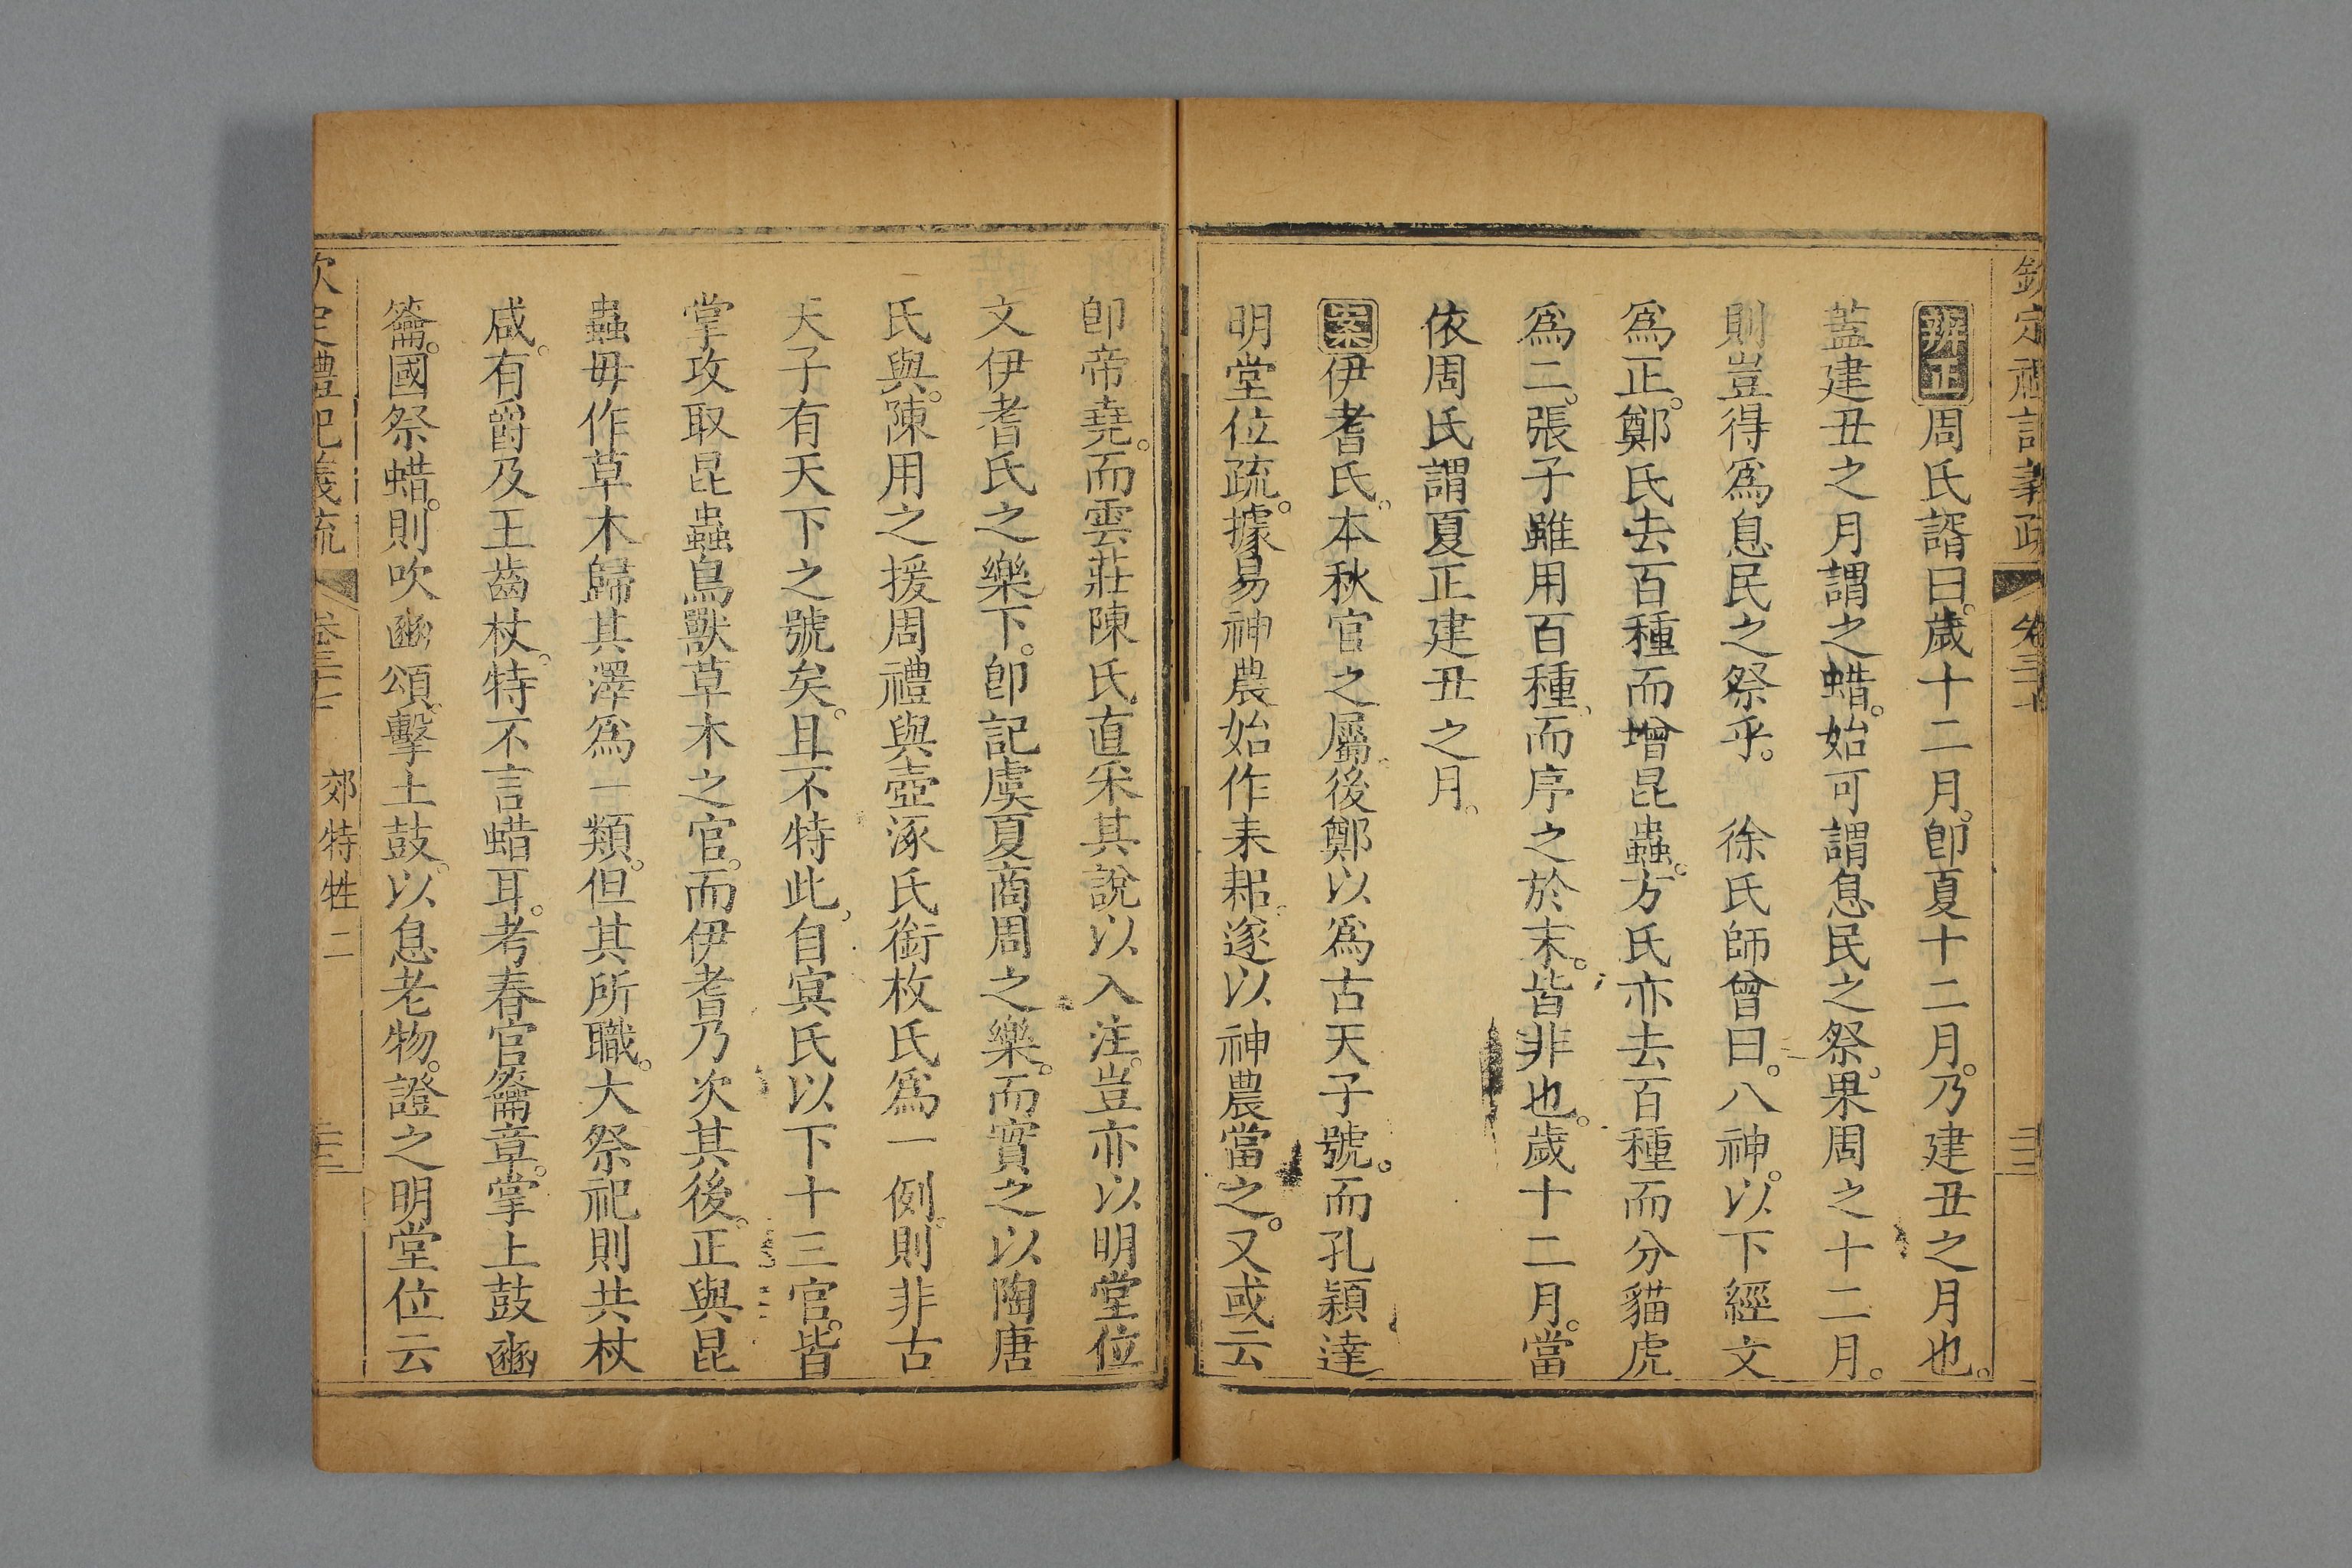 欽定禮記義疏 卷三十
辨正周氏諝曰。歲十二月。卽夏十二月。乃建丑之月也。
蓋建丑之月謂之蜡。始可謂息民之祭。果周之十二月。
則豈得爲息民之祭乎。 徐氏師曾曰。八神。以下經文
爲正。鄭氏去百種而增昆蟲。方氏亦去百種而分貓虎
爲二。張子雖用百種、而序之於末。皆非也。歲十二月。當
依周氏謂夏正建丑之月。
案伊耆氏。本秋官之屬。後鄭以爲古天子號。而孔穎達
明堂位疏。據易神農始作耒耜。遂以神農當之。又或云
卽帝堯。而雲莊陳氏直采其說以入注。豈亦以明堂位
文伊耆氏之樂下。卽記虞夏商周之樂。而實之以陶唐
氏與。陳用之援周禮與壺涿氏銜枚氏爲一例。則非古
天子有天下之號矣。且不特此、自冥氏以下十三官。皆
掌攻取昆蟲鳥獸草木之官。而伊耆乃次其後。正與昆
蟲毋作草木歸其澤爲一類。但其所職。大祭祀則共杖
咸。有爵及王齒杖。特不言蜡耳。考春官籥章。掌土鼓豳
籥。國祭蜡。則吹豳頌。擊土鼓。以息老物。證之明堂位云
欽定禮記義疏 郊特牲二